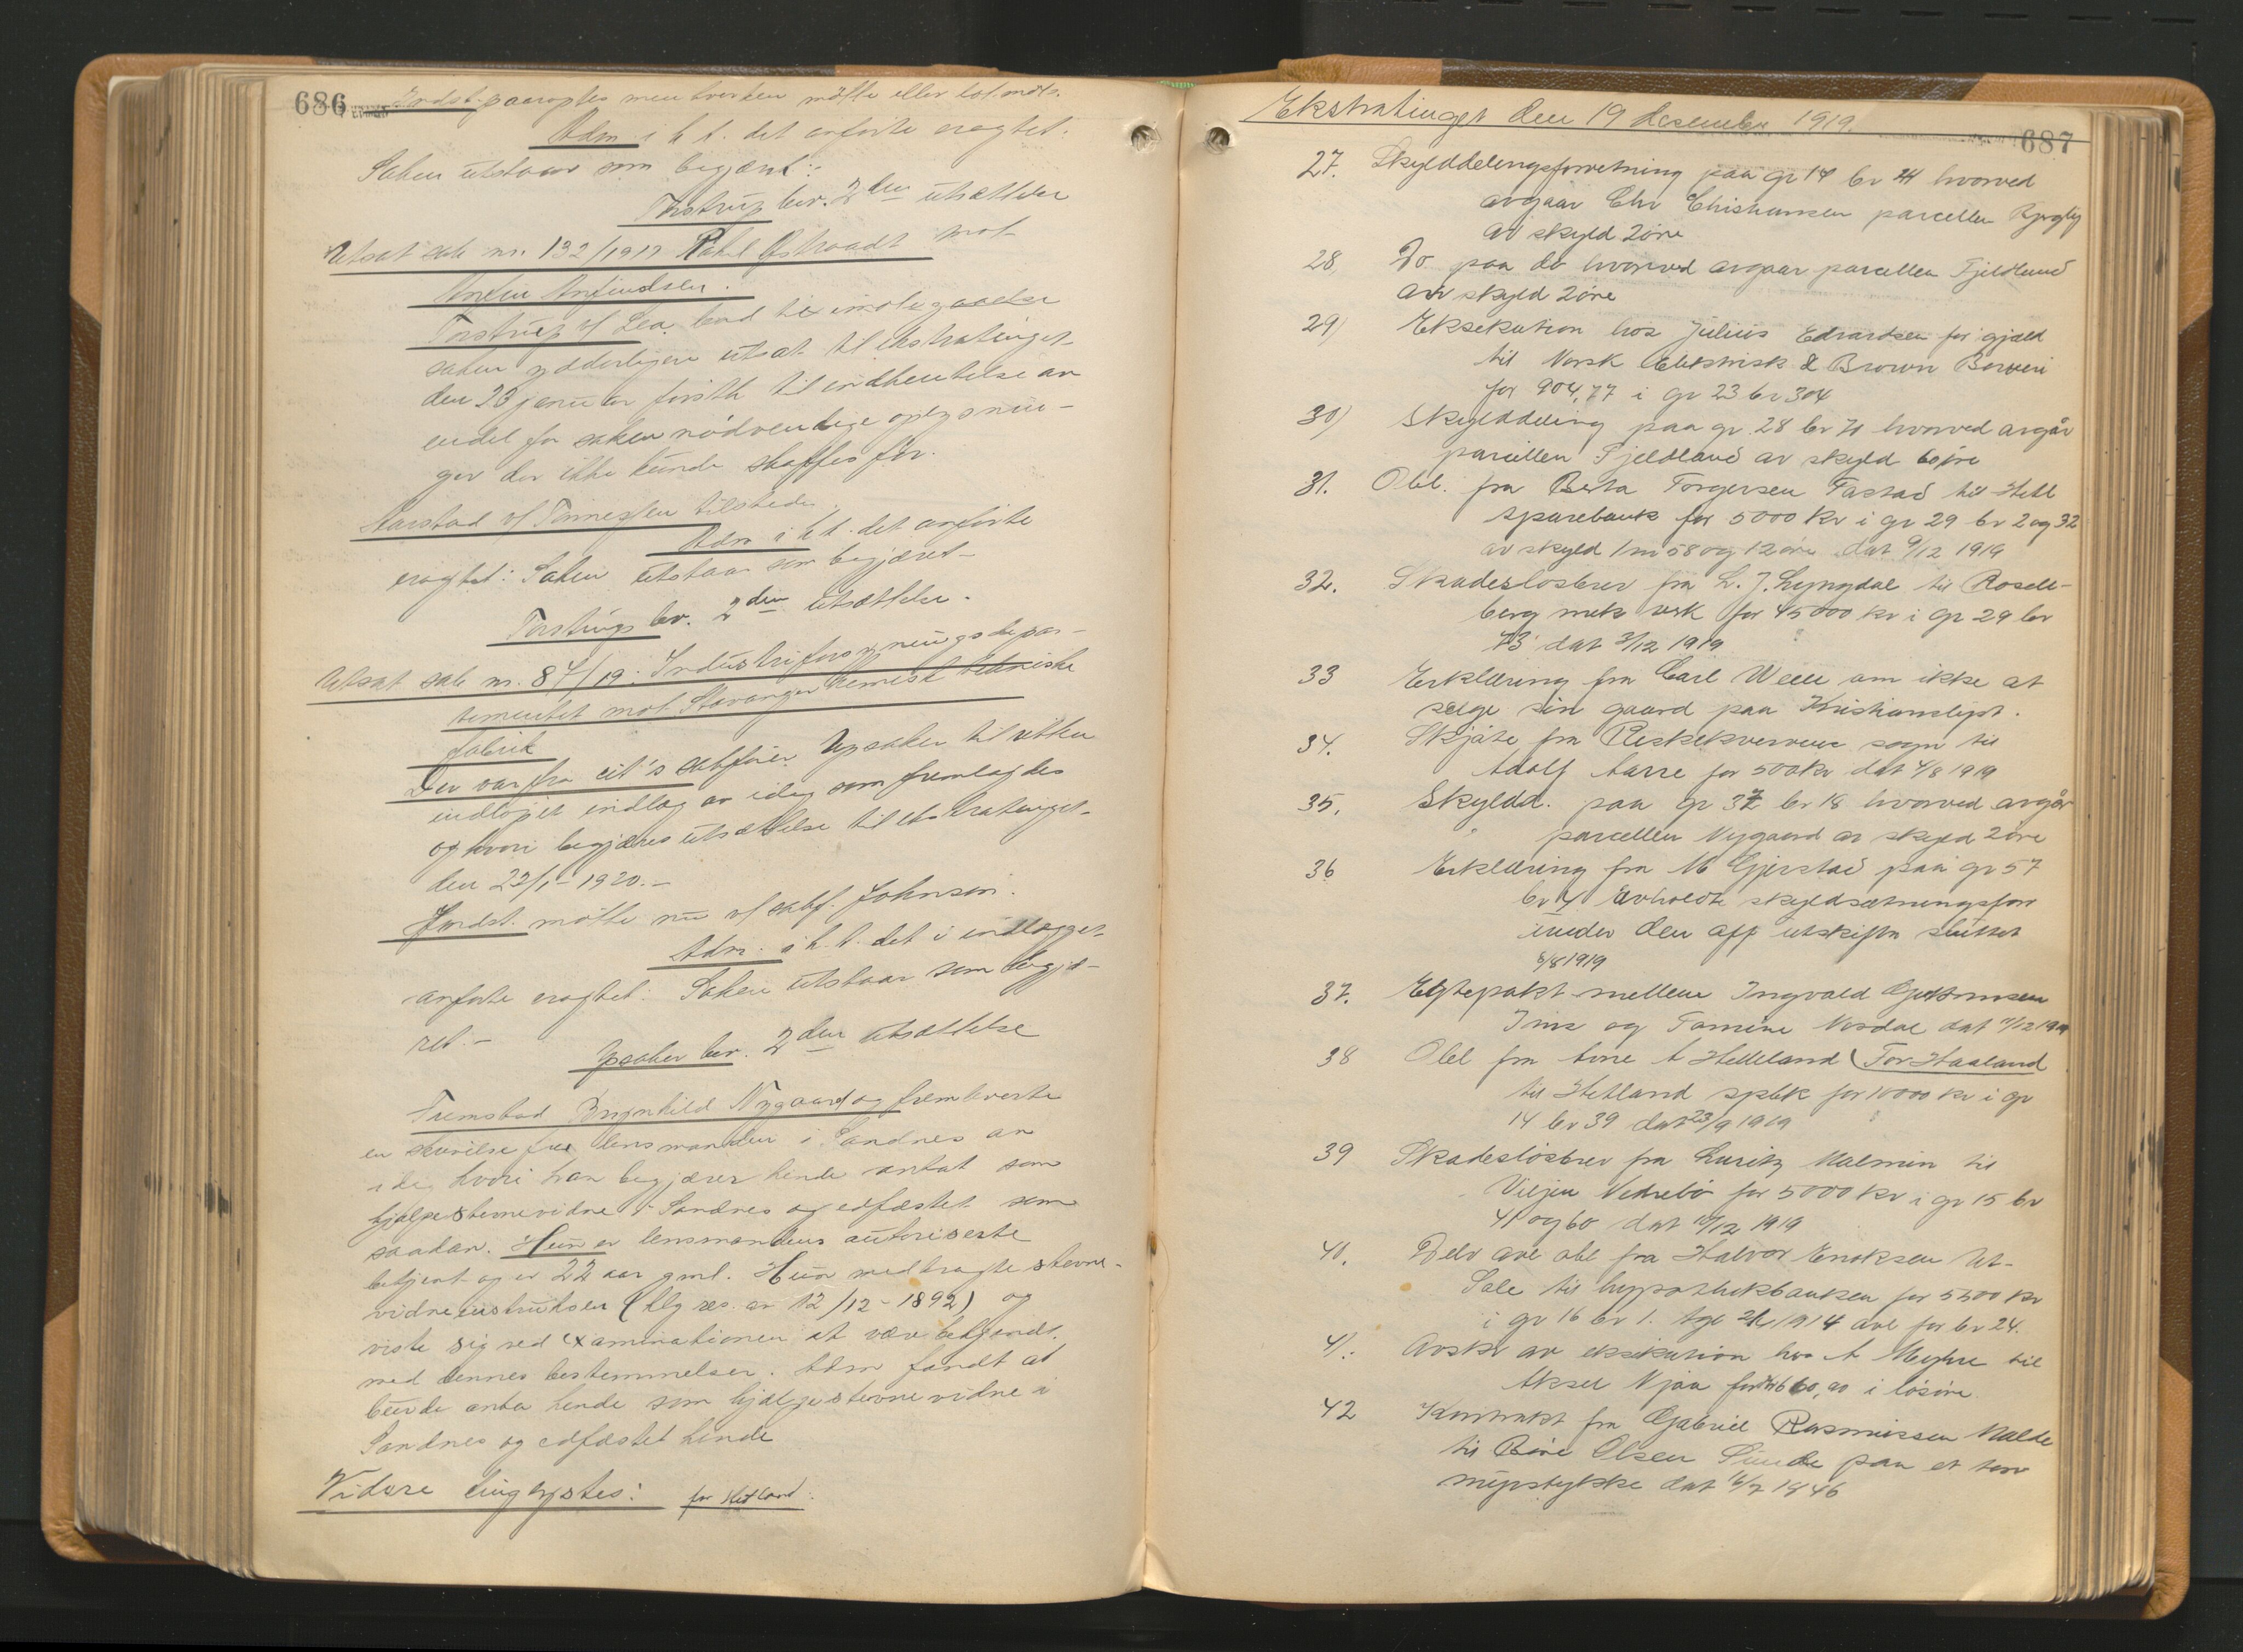 686
Indst. paaroptes men hverken møtte eller lot møte.
Adm i h t. det anførte eragtet:
Saken utstaar som begjært:
Torstrup bev. 2den utsættelse
Utsat sak nr. 132/1917 Rakel Østraadt mot
Torstrup vf Lea bad til imøtegaaelse
saken ydderligere utsat til ekstratinget
den 23 januar førstk til indhentelse av
endel for saken nødvendige oplysnin-
ger der ikke kunde skaffes før.
Aarstad vf Tønnessen tilstede.
Adm i h t. det anførte
eragtet: Saken utstaar som begjæret
Torstrups bev. 2den utsættelse.
Utsat sak nr. 84/19: Industriforsyningsdepar-
tementet mot Stavanger kemisk tekniske
fabrik
Der var fra cit's sakfører Ypsaker til retten
indløpet indlæg av idag som fremlagdes
og hvori begjæres utsættelse til ekstratinget
den 22/1-1920.-
Indst. møtte nu vf sakf. Johnsen.
Adm. i h. t. det i indlægget
anførte eragtet: Saken utstaar som begjæ-
ret.-
Ypsaker bev. 2den utsættelse
Fremstod Brynhild Nygaard og fremhverte
en skrivelse fra lensmanden i Sandnes av
idag hvori han begjærer hende antat som
hjælpestevnevidne i Sandnes og edfæstet som
saadan. Hun er lensmandens autoriserte
betjent og er 22 aar gml. Hun medbragte stevne-
vidneinstruksen (klg res. av 12/12-1892) og
viste sig ved examinationen at være bekjendt
med dennes bestemmelser. Adm fandt at
burde anta hende som hjælpestevnevidne i
Sandnes og edfæstet hende
Videre tinglystes: for Hetland:
Ekstratinget den 19 desember 1919.
687
27. Skylddelingsforretning paa gr 14 br 24 hvorved
avgaar Chr Christiansen parcellen
av skyld 2 øre
28, Do paa do hvorved avgaar parcellen Fjeldlund
av skyld 2 øre
29) Eksekution hos Julius Edvardsen for gjæld
til Norsk Elektrisk & Brown Boweri
for 904,77 i gr 23 br 304
30) Skylddeling paa gr. 28 br 70 hvorved avgår
parcellen Fjeldland av skyld 60 øre
31. Obl. fra Berta Torgersen Tastad til Hetl
sparebank for 5000 kr i gr 29 br 2 og 32
av skyld 1 m 58 og 12 øre dat 9/12 1919
32. Skadesløsbrev fra L. J. Lyngdal til Rosen-
berg mek verk for 45000 kr i gr 29 br
43 dat 3/12 1919
33 Erklæring fra Carl Weee om ikke at
sælge sin gaard paa Kristianslyst.
34. Skjøte fra sogn til
Adolf Aarre for 500 kr dat 4/8 1919
35. Skyldd. paa gr 37 br 18 hvorved avgår
parcellen Nygaard av skyld 2 øre
36 Erklæring fra M Gjerstad paa gr 57
br 4 avholdte skyldsætningsforr
under den off utskiftn sluttet
8/8 1919
37. Egtepakt mellem Ingvald
Ims og Tomine Nordal dat 11/12 1919
38 Obl fra Arne A Helleland (Tor Haaland
til Hetland spbk for 10000 kr i gr
14 br 39 dat 23/9 1919
39 Skadesløsbrev fra Lauritz Malmin til
Viljen Vedrebø for 5000 kr i gr 15 br
41 og 60 dat 10/12 1919
40. Delv avl obl fra Halvor Eriksen Ut-
Sole til hypothekbanken for 5500 kr
i gr 16 br 1. tgl 1914 avl for br 24.
41. Avskr av eksekution hos A Myhre til
Aksel Njaa for kr 660,00 i løsøre
42 Kontrakt fra Gabriel Rasmussen Malde
til Børe Olsen Sunde paa et torv
myrstykke dat